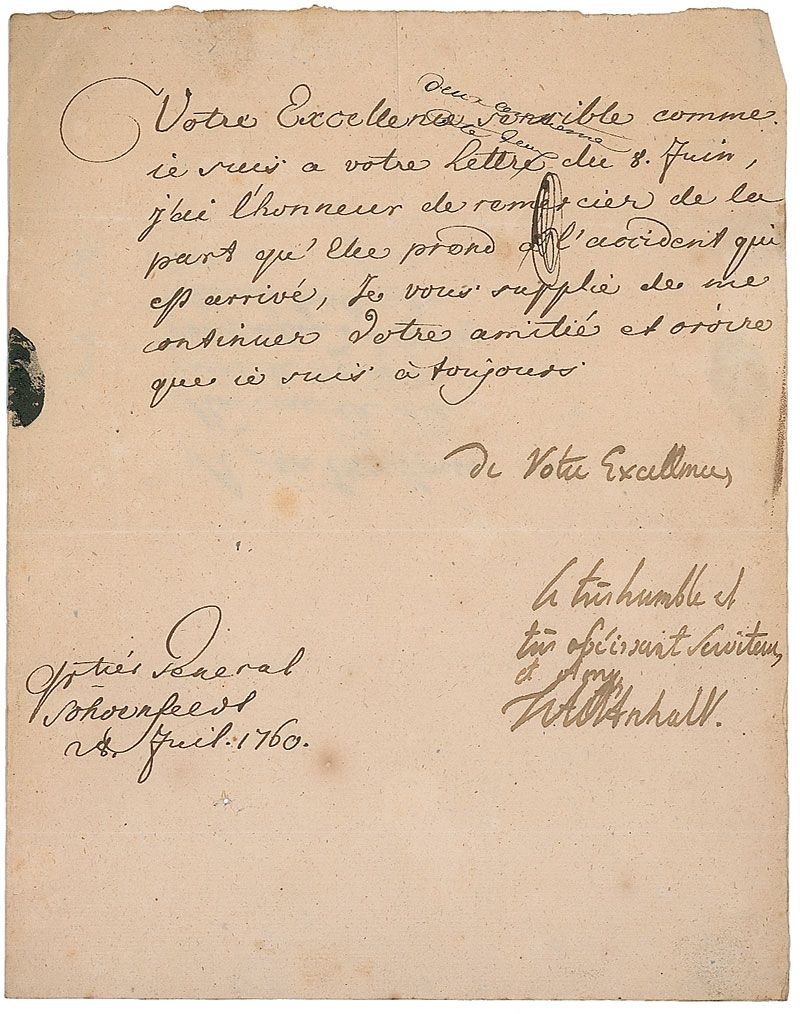 Votre Excellence sensible comme
ie suis a votre lettre du 8. Juin,
j'ai l'honneur de remercier de la
part qu'Elle prend a l'accident qui
est arrivé, Je vous supplie de me
continuer Votre amitié et croire
que ie suis à toujours
de Votre Excellence,
le tres humble et
tres obéissant Serviteur,
et Amy
Anhalt.
General
Schoenfeldt
28. Juil. 1760.